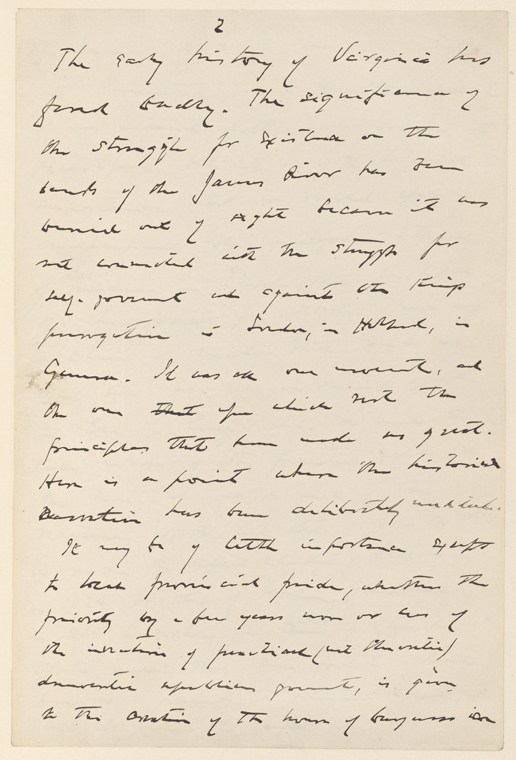 2
The early history of Virginia has
fared badly. The significance of
the struggle for existence on the
banks of the James River has been
buried out of sight because it was
not connected with the struggle for
self-government and against the Kings
prerogative in London, in Holland, in
Geneva. It was all one movement, and
the one that upon which rest the
principles that have made us great.
Here is a point where the historical
narration has been deliberately
It may be of little importance except
to local provincial pride, whether the
priority by a few years more or less of
the invention of practical (not theoretic)
democratic republican government, is given
to the creation of the house of burgesses